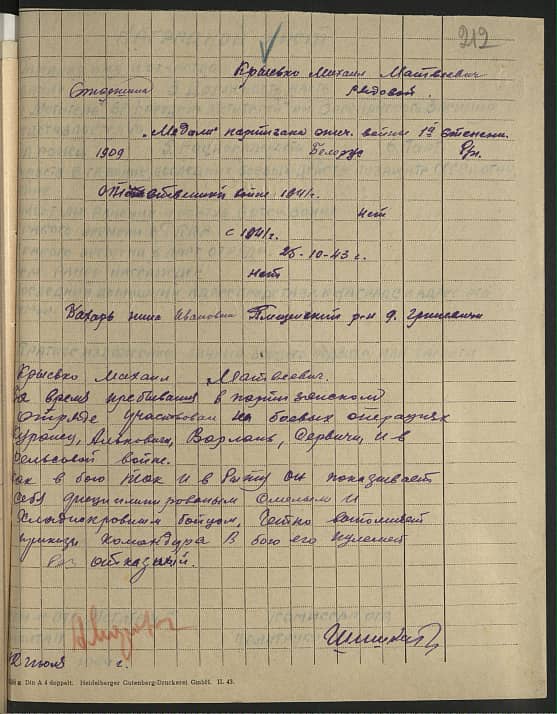 212
Крысько Михаил Матвеевич
рядовой.
"Медали" партизана отеч. войны 1й степени.
1909 Белорус Бр.
отечественной войне 1941г.
нет
с 1941г.
25-10-43 г.
нет
Бахарь нина Ивановна Плещенский р-н д.
Крысько Михаил Матвеевич.
За время пребывания в партизанском
отряде участвовал на боевых операциях
Куранец, Сервичи, и в
рельсовой войне.
как в бою так и в быту он показывает
себя дисциплинированым смелым и
Хладнокровным бойцом, Четко выполняет
приказы командира в бою его пулемет
без отказный.
12 июля г.
Din A 4 doppelt. Heidelberger Gutenberg-Druckerei GmbH. II. 43.